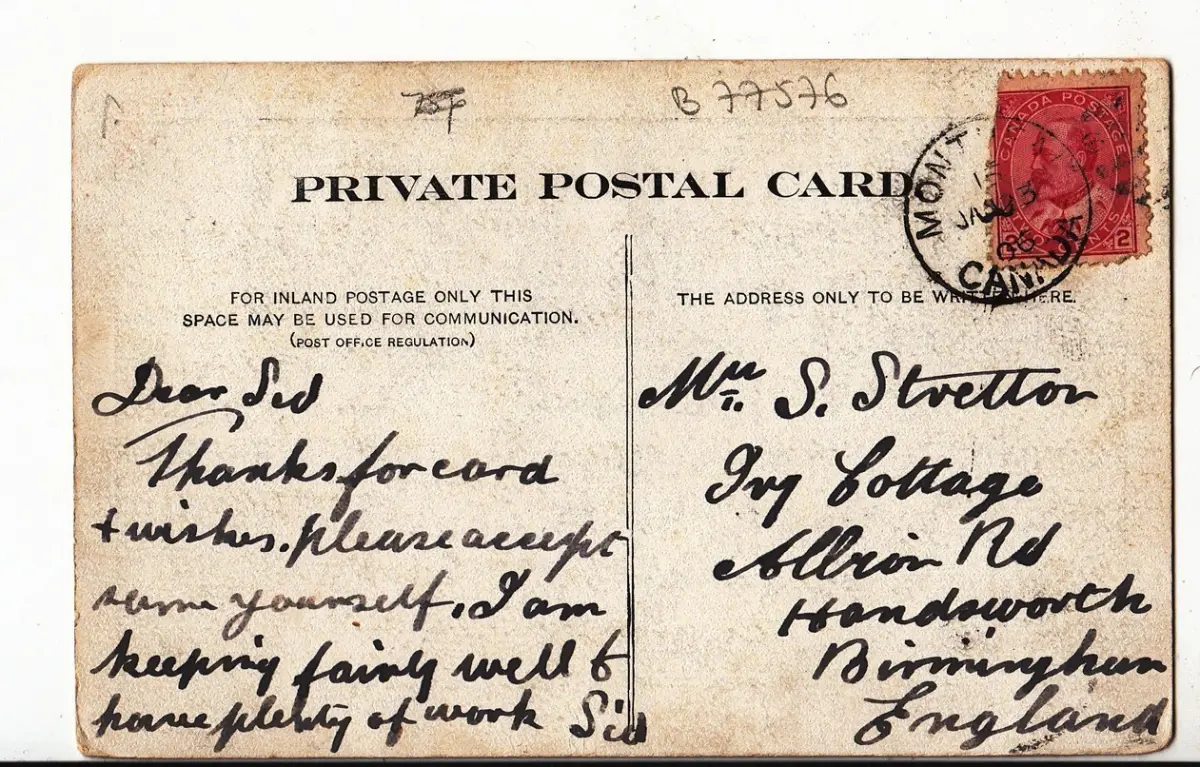 B 77576
PRIVATE POSTAL CARD.
CANADA POSTAGE
2 CENTS 2
MONT
JA 3
06
CANADA
FOR INLAND POSTAGE ONLY THIS
SPACE MAY BE USED FOR COMMUNICATION.
(POST OFFICE REGULATION)
THE ADDRESS ONLY TO BE WRITTEN HERE.
Dear Sid
Thanks for card
+ wishes. please accept
same yourself. I am
keeping fairly well &
have plenty of work Sid
S. Stretton
Ivy Cottage
Albion Rd
Handsworth
Birmingham
England